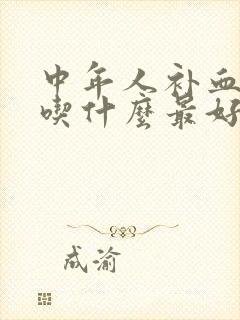 中年人补血
喫什麼最好
成渝